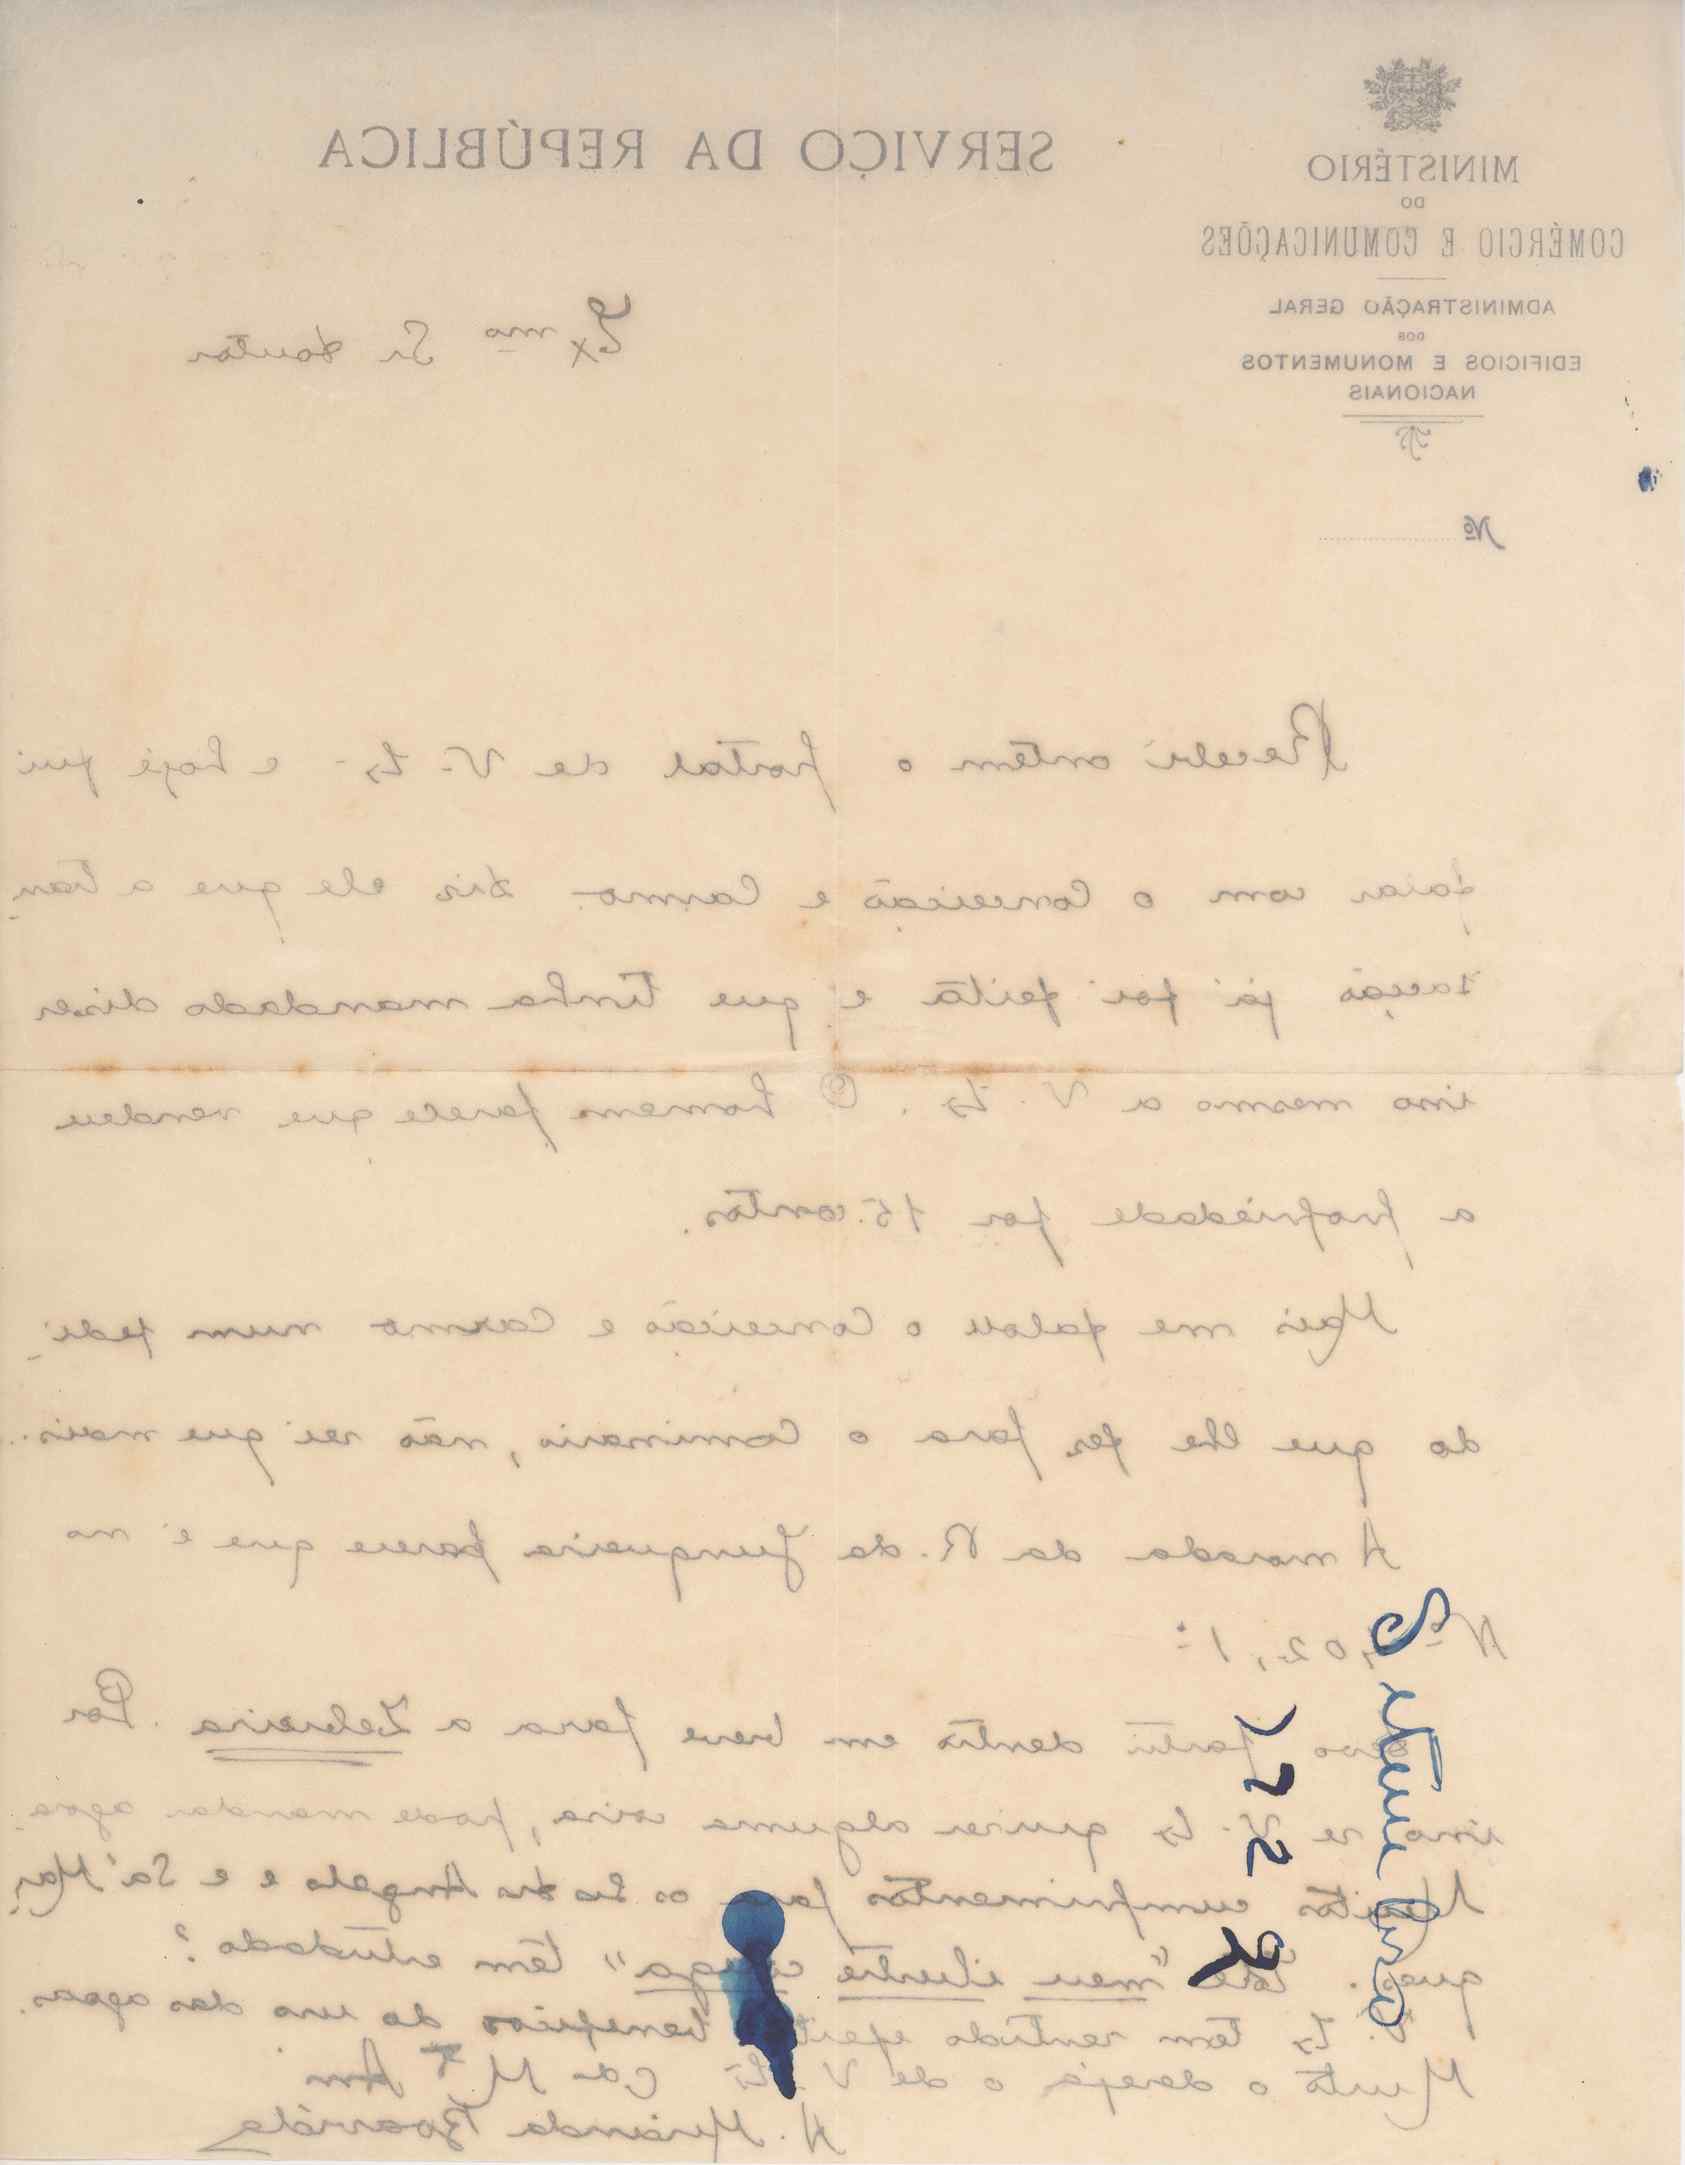 MINISTÉRIO
DO
COMÉRCIO E COMUNICAÇÕES
ADMINISTRAÇÃO GERAL
DOS
EDIFICIOS E MONUMENTOS
NACIONAIS
Nº
SERVIÇO DA REPÚBLICA
Exmo Sr Doutor
Recebi ontem o postal de V. Ex e hoje fui
falar com o Conceição e Carmo. Diz ele que a tran-
sacção já foi feita e que tinha mandado dizer
isso mesmo a V. Ex. O homem parece que vendeu
a propriedade por 15 contos.
Mais me falou o Conceição e Carmo num pedi-
do que lhe fez para o Comissario, não sei que mais..
A morada da R. da Junqueira parece que é no
Nº 02, 1º
Devo partir dentro em breve para a Zebreira. Por
isso se V. Ex quizer alguma coisa, pode mandar agora.
Muitos cumprimentos para os Ex Srs Angelo e e Sá Mar-
ques. "meu ilustre colega" têm estudado?
V. Ex tem sentido beneficios do uso das agoas.
Muito o deseja o de V. Ex Cdo Mto Am
A. Miranda Boavida
Setembro
1922